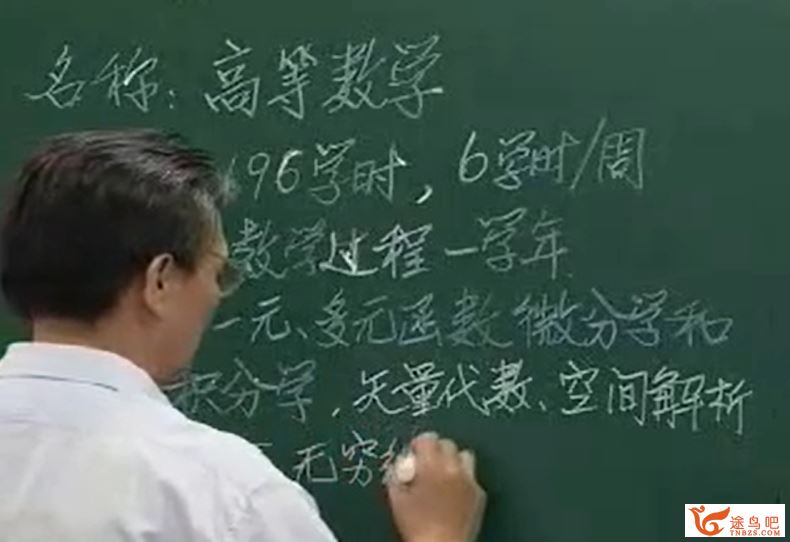 名称：高等数学
196学时，6学时/周
数学过程一学年
一元、多元函数微分学和
积分学，矢量代数、空间解析
、无穷
途鸟吧
TNBZS.COM